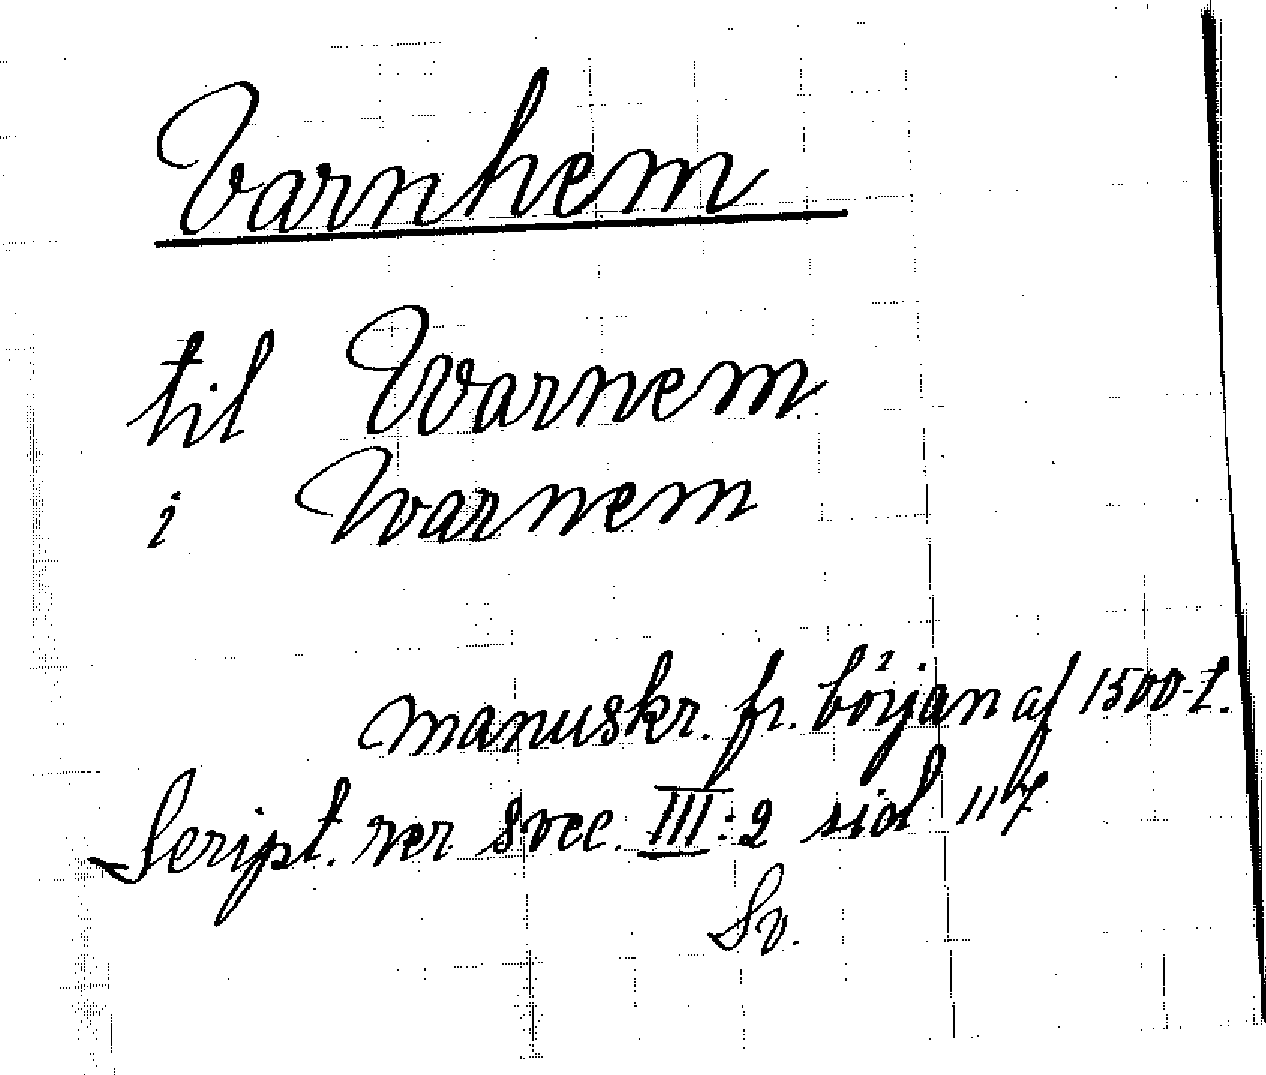 Varnhem
til Warnem
i Warnem
manuskr. fr. början af 1500-t.
Script. rer svec. III:2 sid 117
Sv.